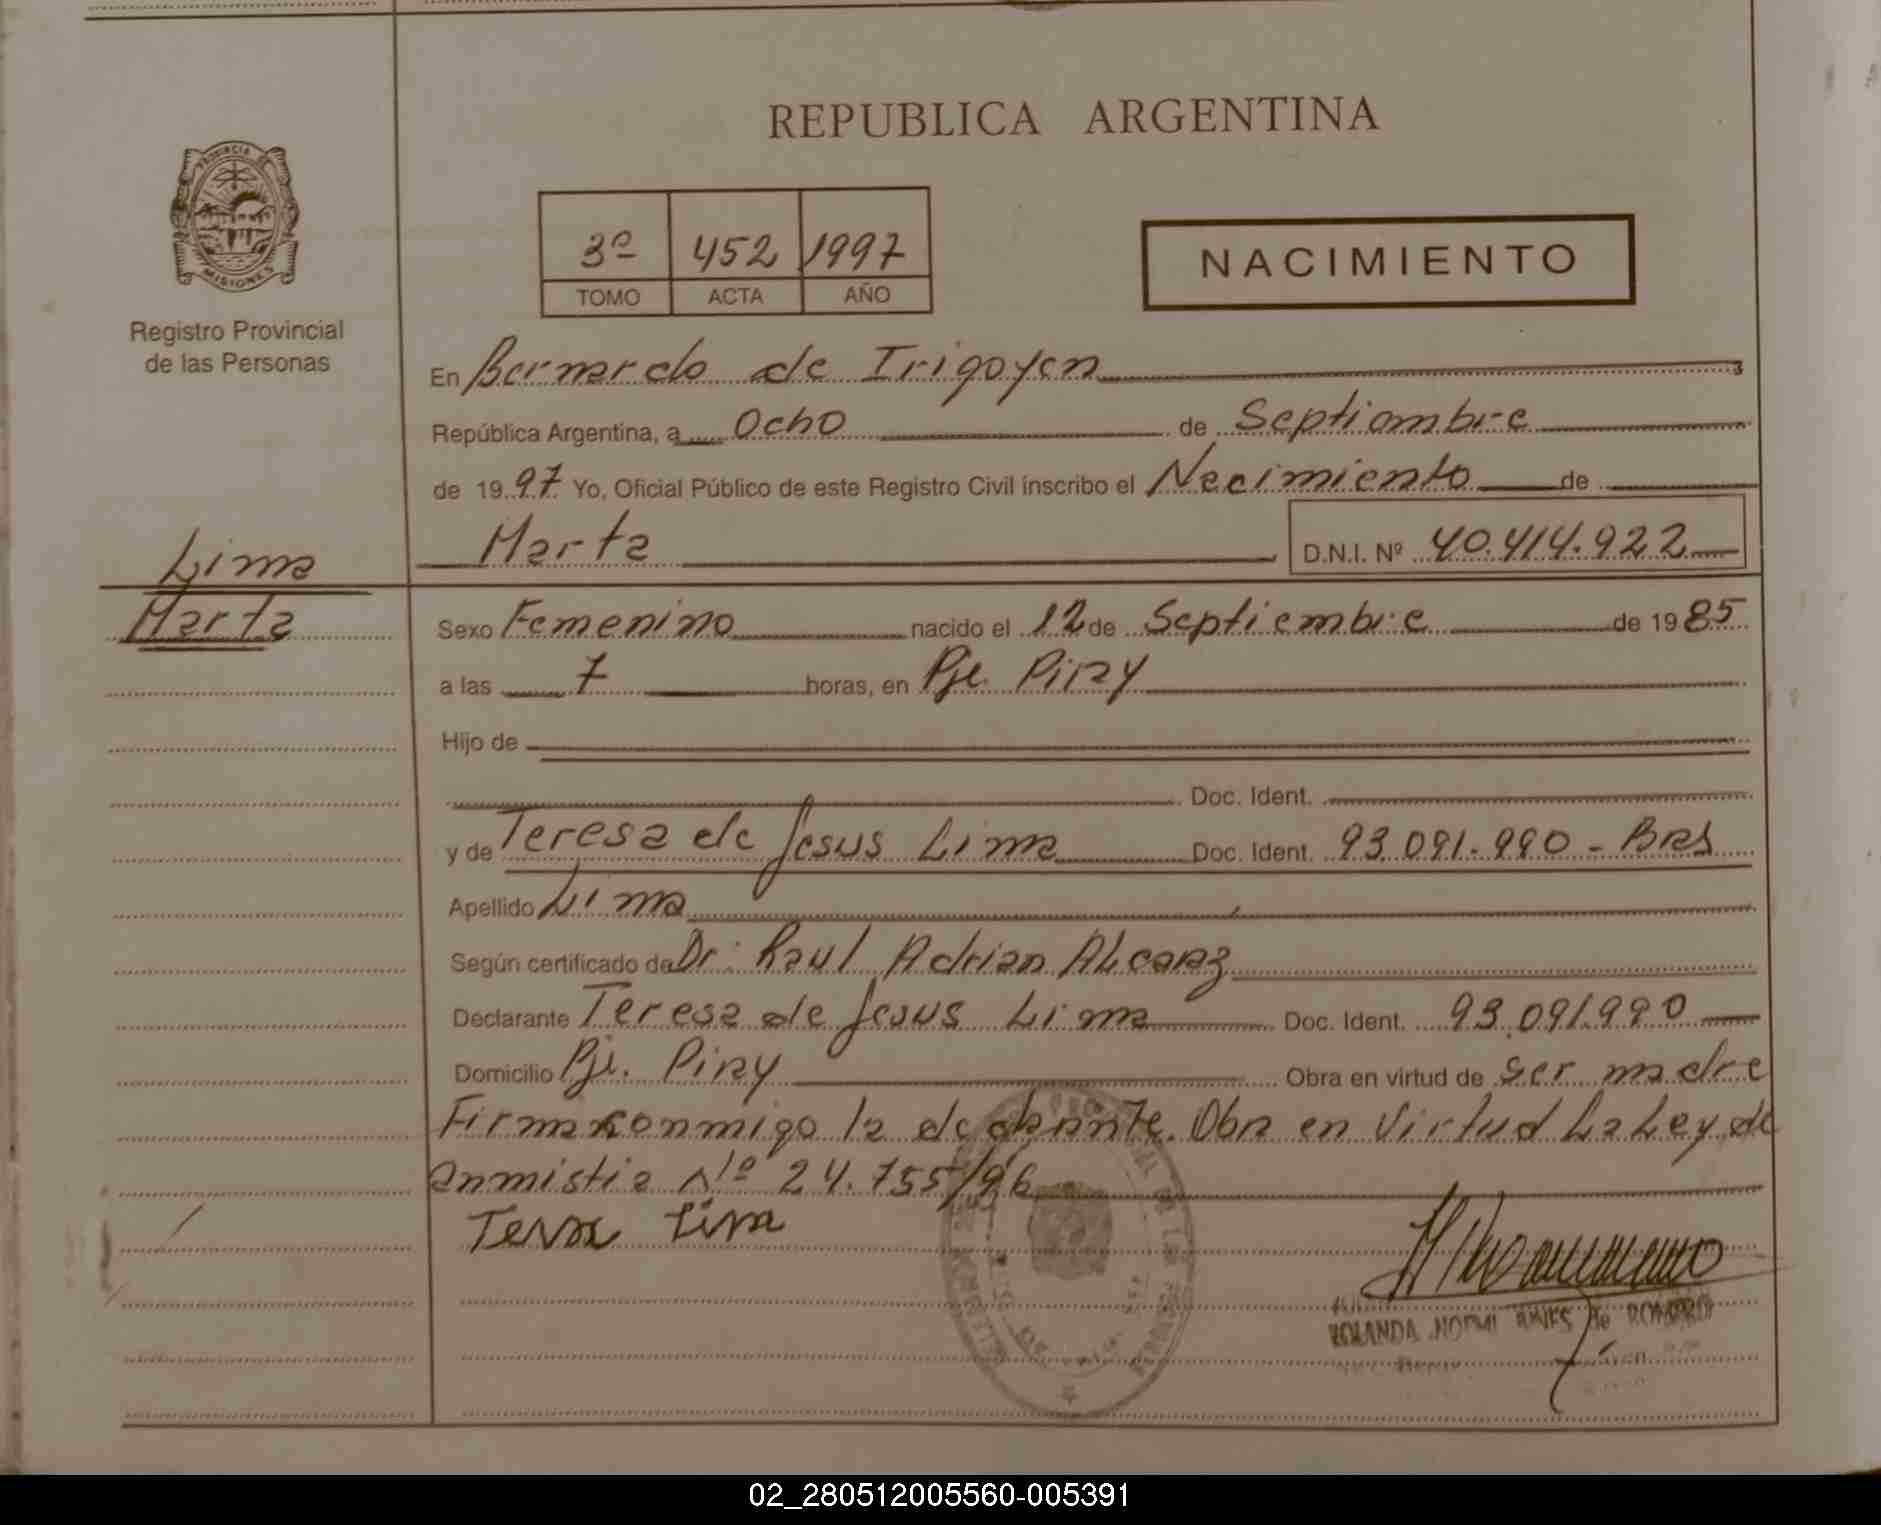 REPUBLICA ARGENTINA
PROVINCIA DE MISIONES
Registro Provincial
de las Personas
3º 452 1997
TOMO ACTA AÑO
NACIMIENTO
En Bernardo de Irigoyen
República Argentina, a Ocho de Septiembre
de 1997 Yo, Oficial Público de este Registro Civil inscribo el Nacimiento de
Marta D.N.I. Nº 40.414.922
Lima
Marta
Sexo Femenino nacido el 12 de Septiembre de 1985
a las 7 horas, en Pje. Piray
Hijo de
Doc. Ident.
y de Teresa de Jesus Lima Doc. Ident. 93.091.990 - Bras
Apellido Lima
Según certificado de Dr. Raul Adrian Alcaraz
Declarante Teresa de Jesus Lima Doc. Ident. 93.091.990
Domicilio Pje. Piray Obra en virtud de ser madre
Firma conmigo la declarante. Obra en Virtud La Ley de
anmistia Nº 24.755/96
Lima
YOLANDA NOEMI de ROMERO
02_280512005560-005391